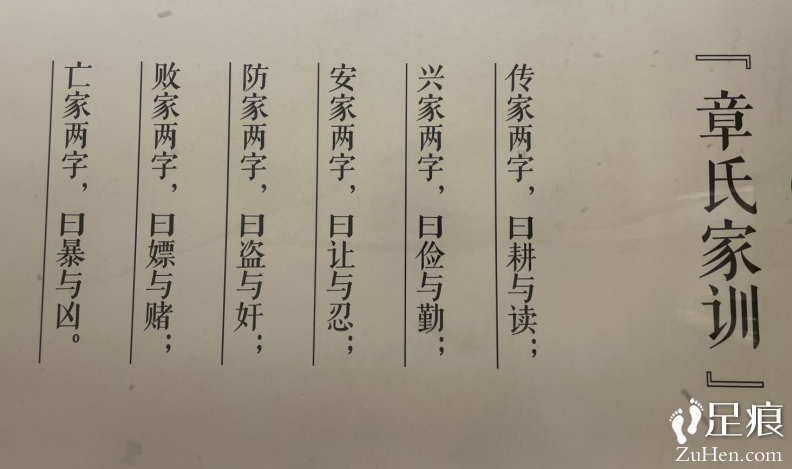 『章氏家训』
传家两字，曰耕与读；
兴家两字，曰俭与勤；
安家两字，曰让与忍；
防家两字，曰盗与奸；
败家两字，曰嫖与赌；
亡家两字，曰暴与凶。
足痕
ZuHen.com